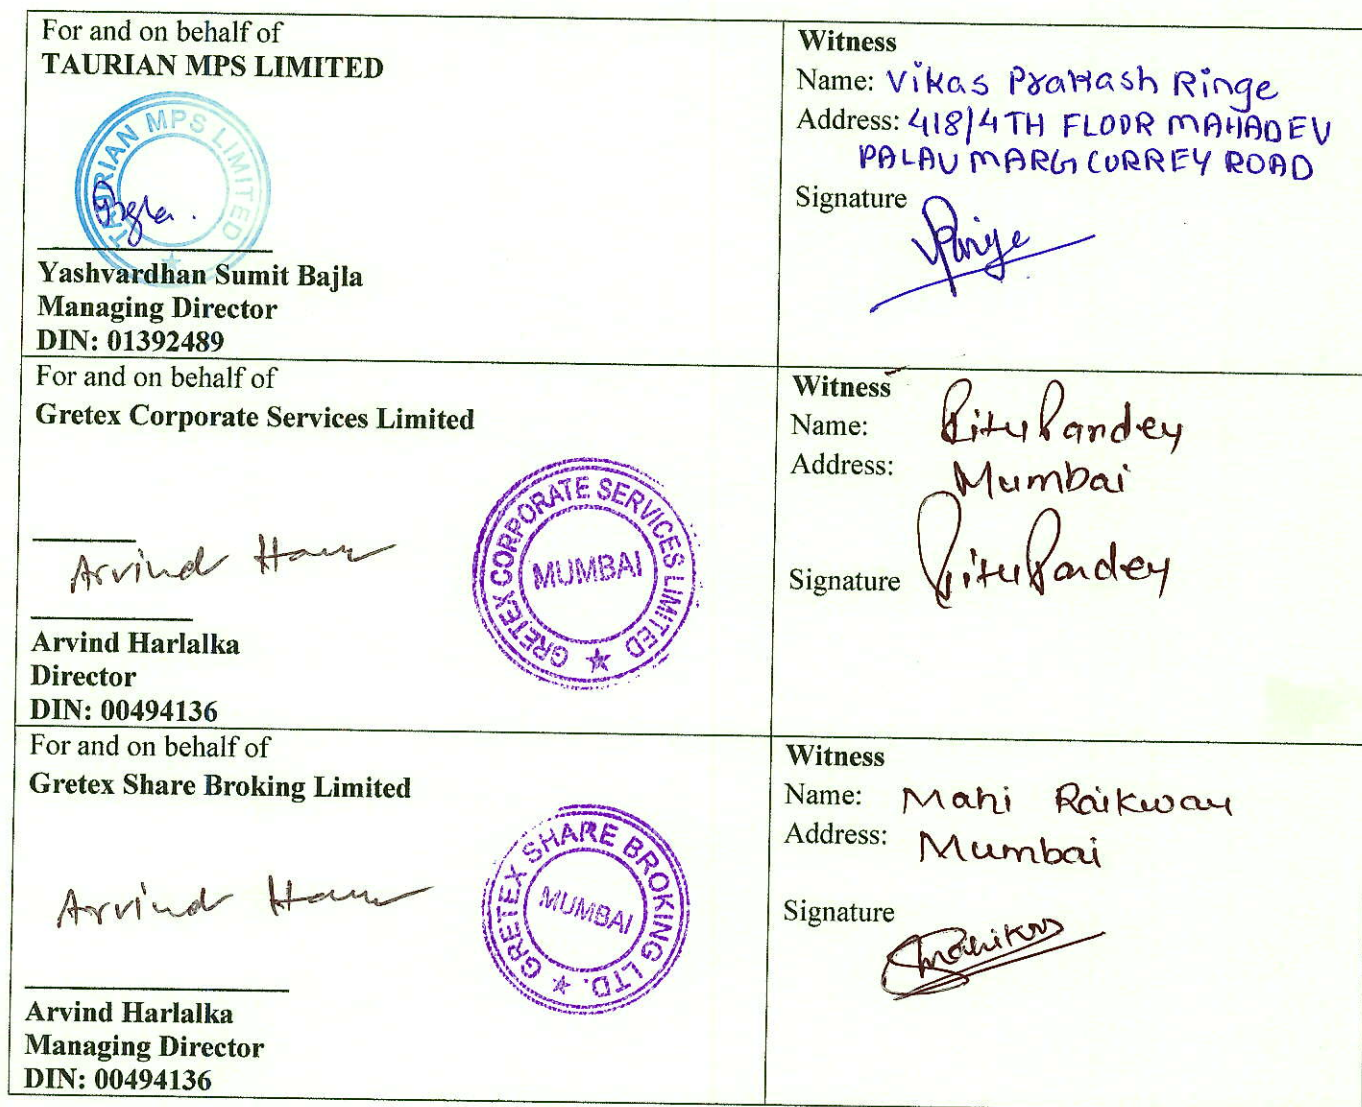 For and on behalf of
TAURIAN MPS LIMITED
TAURIAN MPS LIMITED
Yashvardhan Sumit Bajla
Managing Director
DIN: 01392489
Witness
Name: Vikas Prakash Ringe
Address: 418/4TH FLOOR MAHADEV
PALAV MARG CURREY ROAD
Signature
For and on behalf of
Gretex Corporate Services Limited
Arvind
GRETEX CORPORATE SERVICES LIMITED
MUMBAI
Arvind Harlalka
Director
DIN: 00494136
Witness
Name: Ritu Pandey
Address: Mumbai
Signature Ritu Pandey
For and on behalf of
Gretex Share Broking Limited
Arvind
GRETEX SHARE BROKING LTD.
MUMBAI
Arvind Harlalka
Managing Director
DIN: 00494136
Witness
Name: Mahi Raikwar
Address: Mumbai
Signature